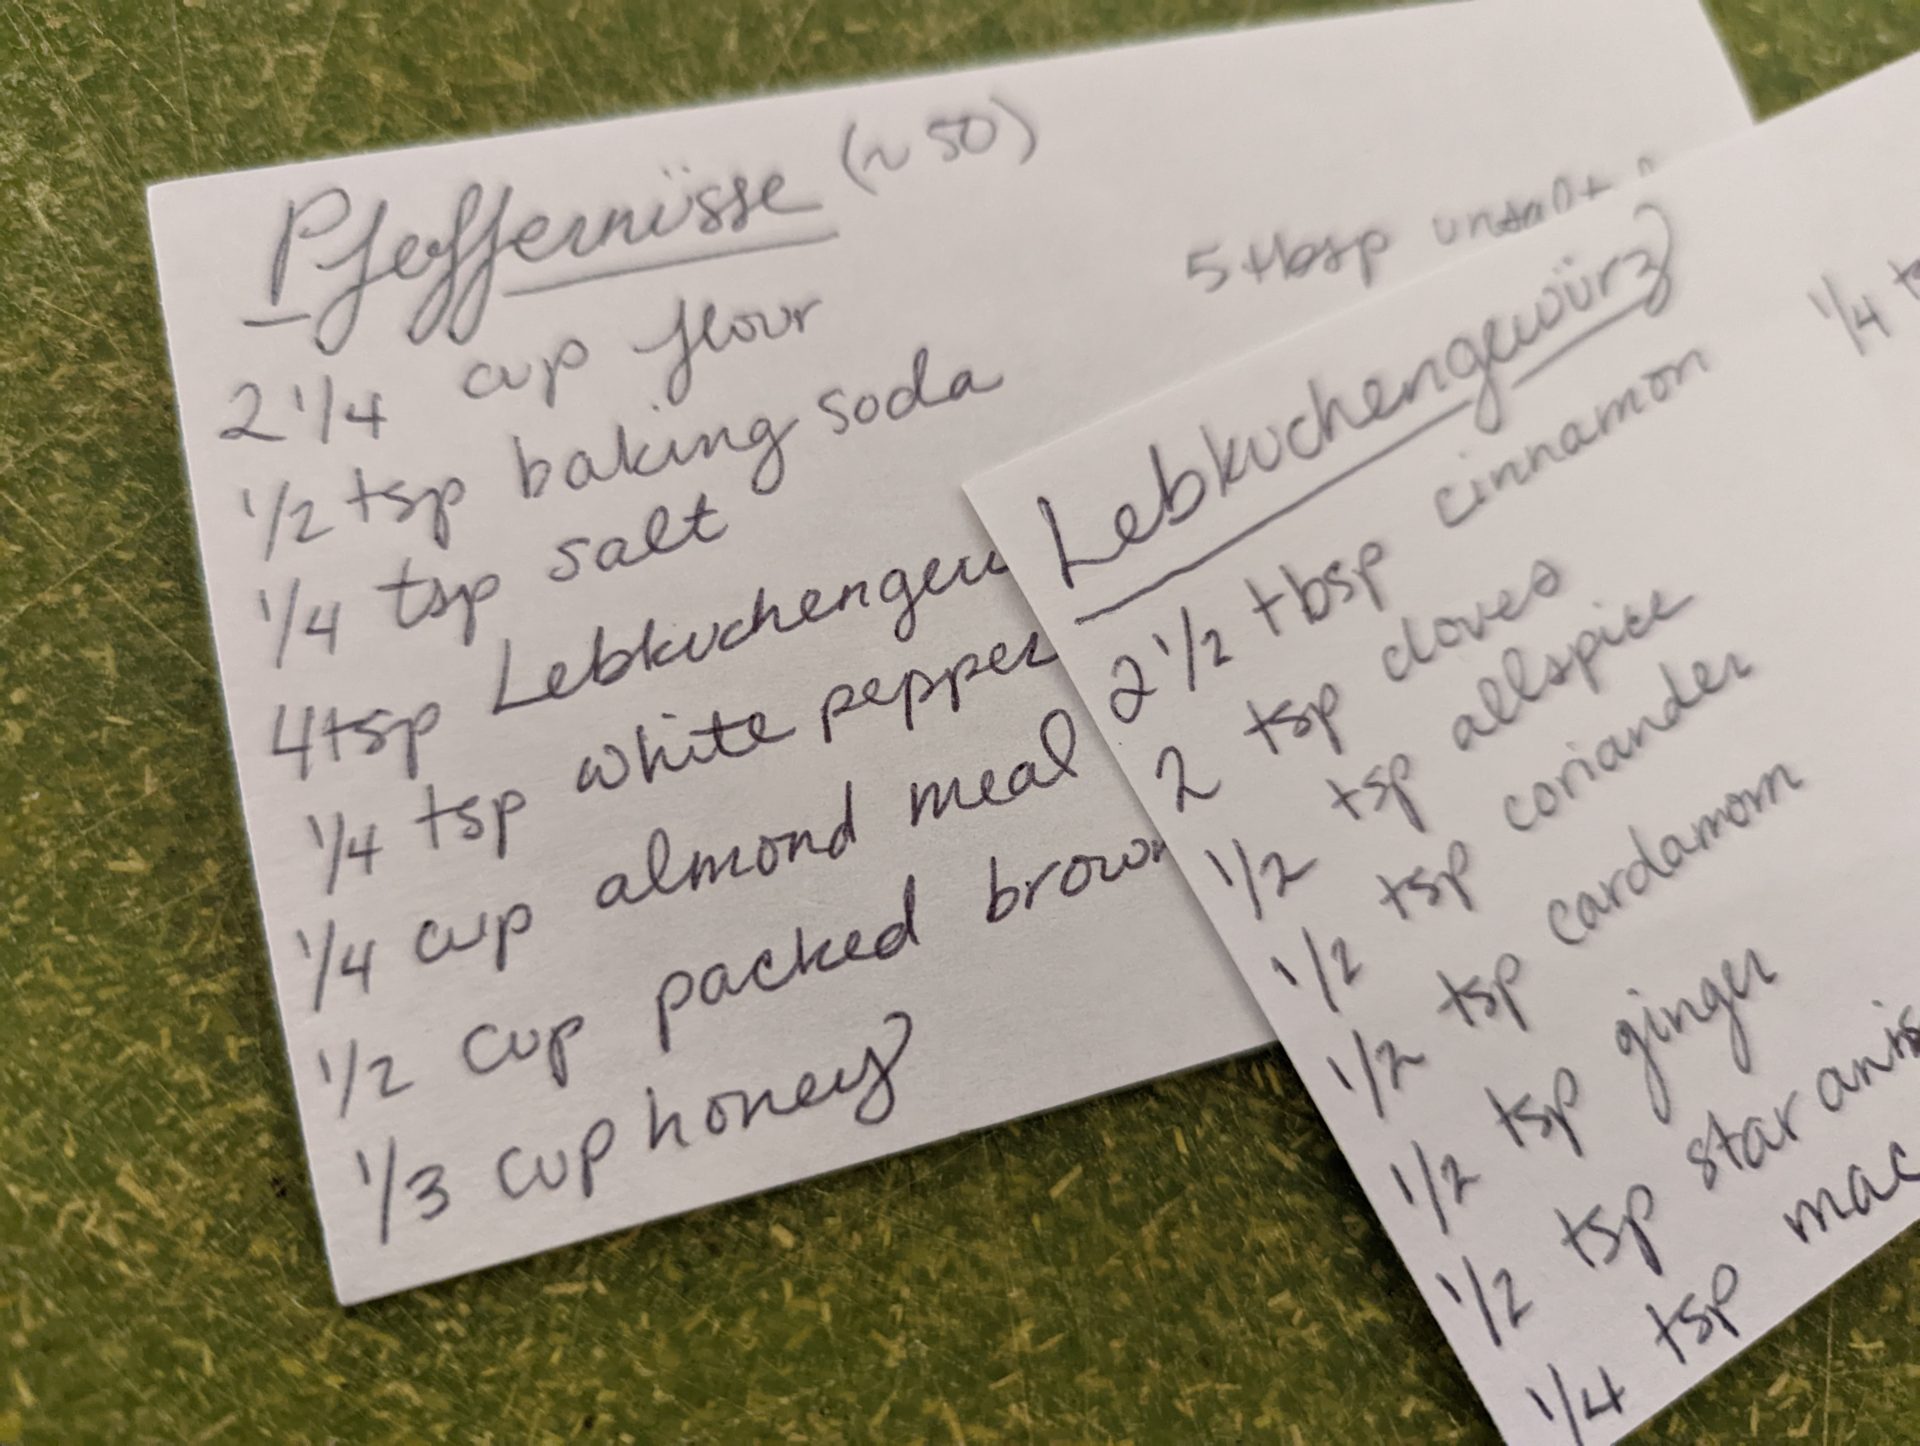 Pfeffernüsse (~50)
2 1/4 cup flour
1/2 tsp baking soda
1/4 tsp salt
4 tsp Lebkuchengew
1/4 tsp white pepper
1/4 cup almond meal
1/2 cup packed brown
1/3 cup honey
5 tbsp
Lebkuchengewürz
2 1/2 tbsp cinnamon
2 tsp cloves
1/2 tsp allspice
1/2 tsp coriander
1/2 tsp cardamom
1/2 tsp ginger
1/2 tsp star anis
1/4 tsp mac
1/4 t